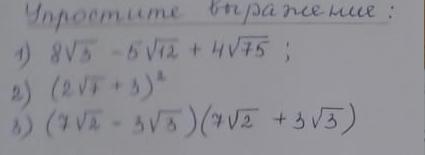 Упростите выражение:
1) 8√3 - 5√12 + 4√75 ;
2) (2√7 + 3)²
3) (7√2 - 3√3)(7√2 + 3√3)